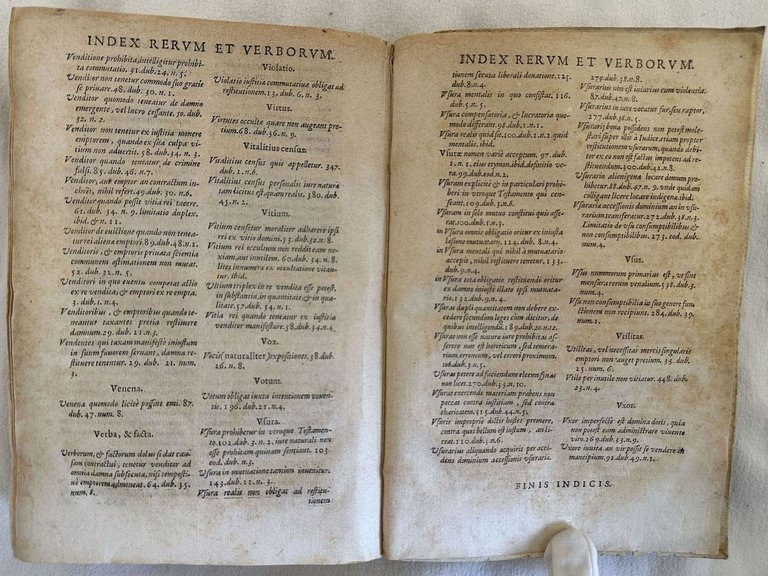 INDEX RERVM ET VERBORVM.
Venditione prohibita, intelligitur prohibi-
ta commutatio. 31. dub. 24. n. 5.
Venditor non tenetur commodo suo gratis
se priuare. 48. dub. 30. n. 1.
Venditor quomodo teneatur de damno
emergente, vel lucro cessante. 50. dub.
32. n. 2.
Venditor non tenetur ex iustitia monere
emptorem, quando ex sua culpa vi-
tium non aduertit. 58. dub. 34. n. 3.
Venditor quando teneatur, de crimine
falsi. 85. dub. 46. n. 7.
Venditor, aut emptor an contractum in-
choët, nihil refert. 49. dub. 70. n. 6.
Venditor quando possit vitia rei tacere.
61. dub. 34. n. 9. limitatio duplex.
ibid. & n. 11.
Venditor de euictione quando non tenea-
tur rei aliena emptori. 89. dub. 48. n. 2.
Venditoris, & emptoris priuata scientia
communem æstimationem non mutat.
52. dub. 32. n. 5.
Venditori in quo euentu competat actio
ex re vendita, & emptori ex re empta.
3. dub. 1. n. 4.
Venditoribus, & emptoribus quando te-
neantur taxantes pretia restituere
damnum. 29. dub. 21. n. 2.
Vendentes qui taxant manifeste iniustum
in suum fauorem seruant, damna re-
stituere tenentur. 29. dub. 21. num.
3.
Venena.
Venena quomodo licitè possint emi. 87.
dub. 47. num. 8.
Verba, & facta.
Verborum, & factorum dolus si das cau-
sam contractui, tenetur venditor ad
omnia damna subsecuta, nisi tempesti-
uè emptorem admoneat. 64. dub. 35.
num. 8.
Violatio.
Violatio iustitia commutatiua obligat ad
restitutionem. 13. dub. 6. n. 3.
Virtus.
Virtutes occulta quare non augeant pre-
tium. 68. dub. 36. n. 9.
Vitalitius census.
Vitalitius census quis appelletur. 347.
dub. 1. n. 6.
Vitalitius census personalis iure natura
tam licitus est, quam realis. 380. dub.
45. n. 2.
Vitium.
Vitium censetur moraliter adhærere ipsi
rei ex vitio domini. 55. dub. 32. n. 8.
Vitium rei occultum non reddit eam no-
xiam, aut inutilem. 60. dub. 34. n. 8.
lites innumera ex occultatione vitan-
tur. ibid.
Vitium triplex in re vendita esse potest,
in substantia, in quantitate, & in qua-
litate. 57. dub. 34. n. 1.
Vitia rei quando teneatur ex iustitia
venditor manifestare. 58. dub. 34. n. 4.
Vox.
Vocis (naturaliter) expositiones. 38. dub.
26. n. 8.
Votum.
Votum obligat iuxta intentionem vouen-
tis. 196. dub. 21. n. 4.
Vsura.
Vsura prohibetur in vtroque Testamen-
to. 102. dub. 3. n. 2. iure naturali non
esse prohitam quinam sentiant. 103.
eod. dub. n. 3.
Vsura in mutuatione tantùm inuenitur.
143. dub. 11. n. 3.
Vsura realis non obligat ad restitu-
tionem
INDEX RERVM ET VERBORVM.
tionem secuta liberali donatione. 125.
dub. 8. n. 4.
Vsura mentalis in quo consistat. 116.
dub. 5. n. 5.
Vsura compensatoria, & lucratoria quo-
modo differant. 98. dub. 1. n. 1.
Vsura realis quid sit. 100. dub. 1. n. 2. quid
mentalis. ibid.
Vsuræ nomen variè acceptum. 97. dub.
1. n. 1. eius etymon. ibid. definitio ve-
ra. 99. dub. eod. n. 2.
Vsuram explicitè & in particulari prohi-
beri in vtroque Testamento qui cen-
seant. 109. dub. 3. n. 6.
Vsuram in solo mutuo constitui quis asse-
rat. 100. dub. 1. n. 3.
in Vsura omnis obligatio oritur ex iniusta
lesione mutuatarij. 124. dub. 8. n. 4.
in Vsura mentali qui nihil à mutuatario
accepit, nihil restituere tenetur. 135.
dub. 9. n. 4.
in Vsura tota obligatio restituendi oritur
ex damno iniuste illato ipsi mutuata-
rio. 132. dub. 9. n. 4.
Vsuras dupli quantitatem non debere ex-
cedere secundum leges cùm dicitur, de
quibus intelligendũ. 189. dub. 20. n. 12.
Vsuras non esse natura iure prohibitas as-
serere non est hæreticum, sed temera-
rium, erroneum, vel errori proximum.
106. dub. 3. n. 5.
Vsuras petere ad faciendum eleemosynas
non licet. 270. dub. 33. n. 10.
Vsuras exercendi materiam præbens non
peccat contra iustitiam, sed contra
charitatem. 315. dub. 44. n. 5.
Vsuris impropriè dictis hostes premere,
contra quos bellum est iustum, an li-
ceat. 110. dub. 3. n. 6.
Vsurarius aliquando acquirit per acci-
dens dominium accessionis vsuraria.
279. dub. 38. n. 8.
Vsurarius non est iniurius cum violentia.
87. dub. 47. n. 8.
Vsurarius in iure vocatur fur, seu raptor,
277. dub. 38. n. 5.
Vsurarij bona possidens non potest mole-
stari super illis à Iudice, etiam propter
restitutionem vsurarum, quando debi-
tor ex eo non est factus impotens ad re-
stituendum. 300. dub. 42. n. 8.
Vsurario alienigena locare domum prohi-
betur. 88. dub. 47. n. 9. vnde quidam
colligant licere locare indigena. ibid.
Vsuraria accessionis dominium an in vsu-
rarium transferatur. 272. dub. 38. n. 3.
Limitatio de vsu consumptibilibus, &
non consumptibilibus. 273. eod. dub.
num. 4.
Vsus.
Vsus nummorum primarius est, vt sint
mensura rerum venalium. 538. dub. 3.
num. 4.
Vsus non consumptibilia in suo genere fun-
ctionem non recipiunt. 284. dub. 39.
num. 1.
Vtilitas.
Vtilitas, vel necessitas mercis singularis
emptori non auget pretium. 35. dub.
25. num. 6.
Vtile per inutile non vitiatur. 448. dub.
23. n. 4.
Vxor.
Vxor imperfectè est domina dotis, quia
non potest eam administrare viuente
viro. 269. dub. 33. n. 9.
Vxore inuita an vir possit se vendere in
mancipium. 92. dub. 49. n. 2.
FINIS INDICIS.